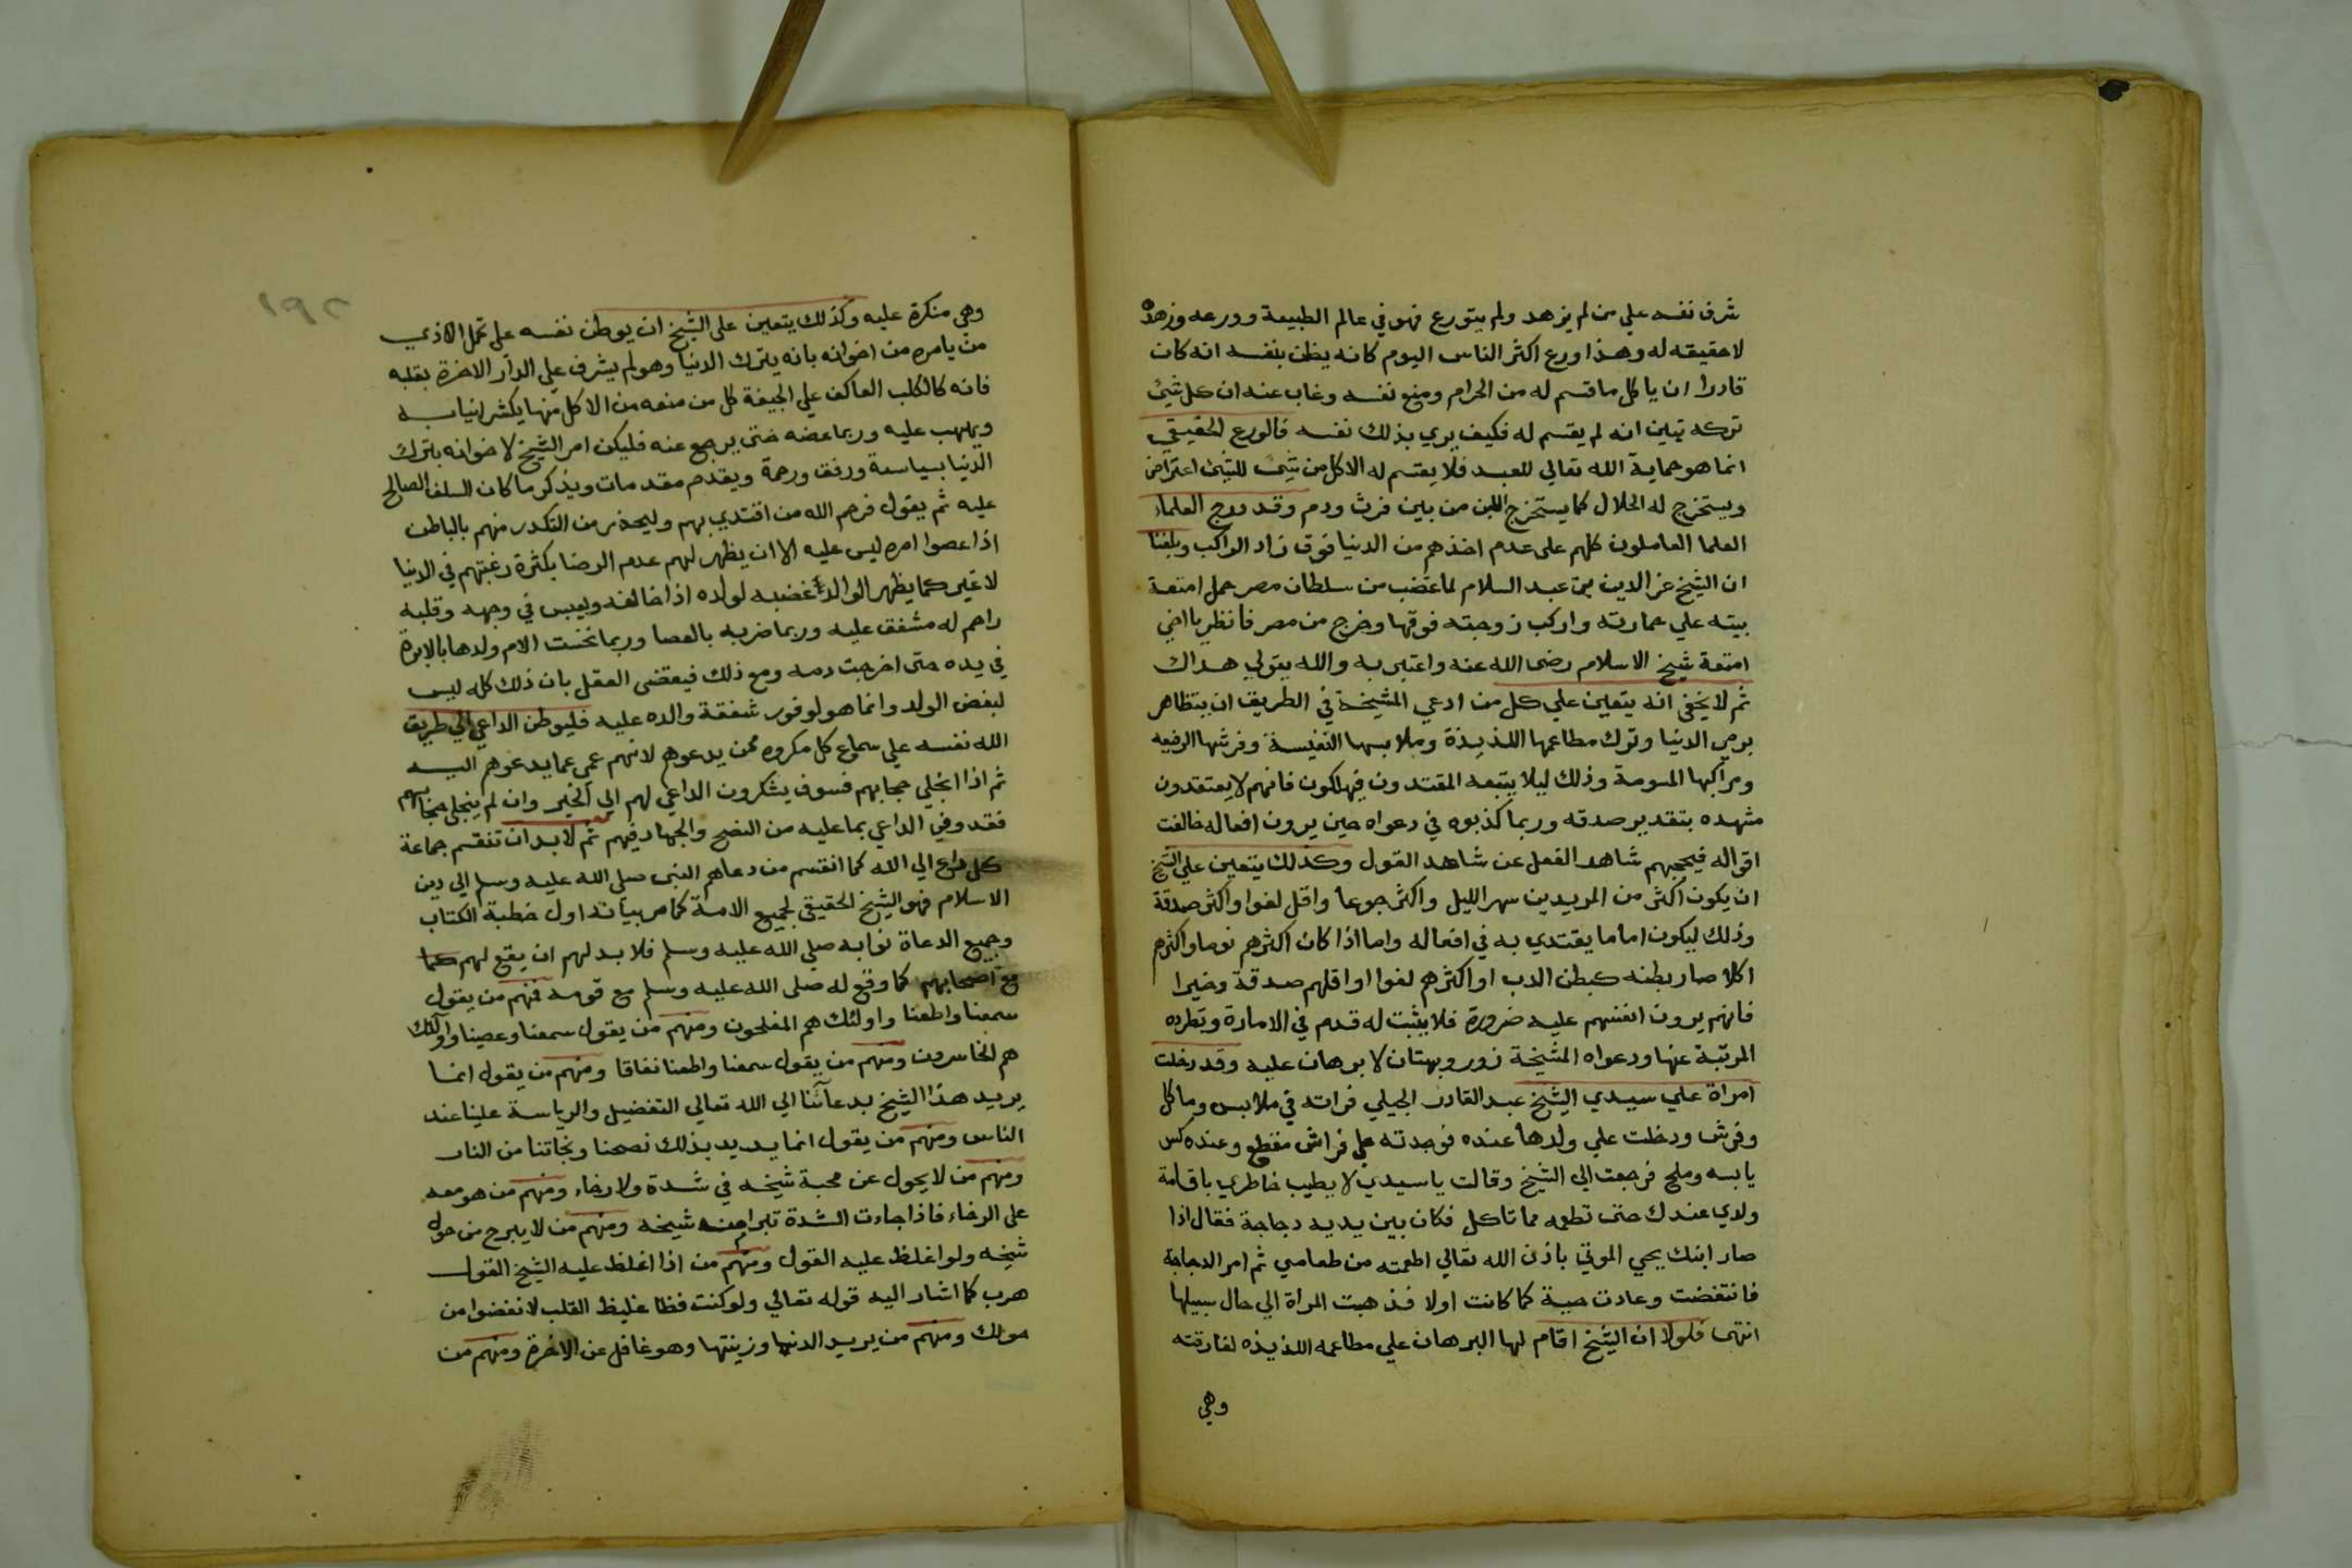 شرف نفسه علي من لم يزهد ولم يتورع فهو في عالم الطبيعة وورعه وزهده
لاحقيقه له وهذا ورع اكثر الناس اليوم كانه يظن بنفسه انه كان
قادرا ان ياكل ماقسم له من الحرام ومنع نفسه وغاب عنه ان كل شيئ
تركه تبين انه لم يقسم له فكيف يري بذلك نفسه فالورع الحقيقي
انما هو حماية الله تعالي للعبد فلا يقسم له الاكل من شيئ للشيئ اعتراض
ويستخرج له الحلال كما يستخرج اللبن من بين فرث ودم وقد درج العلماء
العلما العاملون كلهم على عدم اخذهم من الدنيا فوق زاد الراكب وبلغنا
ان الشيخ عز الدين بن عبد السلام لما غضب من سلطان مصر حمل امتعة
بيته علي حمارته واركب زوجته فوقها وخرج من مصر فانظر يا اخي
امتعة شيخ الاسلام رضى الله عنه واعتبر به والله يتولي هداك
ثم لا يخفى انه يتعين علي كل من ادعي المشيخة في الطريق ان يتظاهر
برمي الدنيا وترك مطاعمها اللذيذة وملابسها النفيسة وفرشها الرفيعه
ومراكبها المسومة وذلك ليلا يتبعه المقتدون فيهلكون فانهم لا يعتقدون
مشهده بتقدير صدقه وربما كذبوه في دعواه حين يرون افعاله خالفت
اقواله فيحجبهم شاهد الفعل عن شاهد القول وكذلك يتعين علي الشيخ
ان يكون اكثر من المريدين سهر الليل واكثر جوعا واقل لغوا واكثر صدقة
وذلك ليكون اماما يقتدي به في افعاله واما اذا كان اكثرهم نوما واكثرهم
اكلا صار بطنه كبطن الدب او اكثرهم لغوا او اقلهم صدقة وخيرا
فانهم يرون انفسهم عليه ضرورة فلا يثبت له قدم في الامارة وتطرده
المرتبة عنها ودعواه المشيخة زور وبهتان لا برهان عليه وقد دخلت
امراة علي سيدي الشيخ عبد القادر الجيلي فراته في ملابس وماكل
وفرش ودخلت علي ولدها عنده فوجدته علي فراش مقطع وعنده كسر
يابسه وملح فرجعت الي الشيخ وقالت يا سيدي لا يطيب خاطري باقامة
ولدي عندك حتى تطعمه مما تاكل فكان بين يديه دجاجة فقال اذا
صار ابنك يحي الموتي باذن الله تعالي اطعمته من طعامي ثم امر الدجاجة
فانتفضت وعادت حية كما كانت اولا فذهبت المراة الي حال سبيلها
انتهى فلولا ان الشيخ اقام لها البرهان علي مطاعمه اللذيذه لفارقته
وهي
١٩٢
وهي منكرة عليه وكذلك يتعين على الشيخ ان يوطن نفسه على تحمل الاذي
من يامره من اخوانه بانه يترك الدنيا وهو لم يشرف علي الدار الاخرة بقلبه
فانه كالكلب العاكف علي الجيفة كل من منعه من الاكل منها يكشر انيابه
ويهلهب عليه وربما عضه حتى يرجع عنه فليكن امر الشيخ لاخوانه بترك
الدنيا بسياسة ورفق ورحمة ويقدم مقدمات ويذكر ما كان السلف الصالح
عليه ثم يقول فرحم الله من اقتدي بهم وليحذر من التكدر منهم بالباطن
اذا عصوا امره ليس عليه الا ان يظهر لهم عدم الرضا بكثرة رغبتهم في الدنيا
لا غير كما يظهر الوالد غضبه لولده اذا خالفه ويعبس في وجهه وقلبه
راحم له مشفق عليه وربما ضربه بالعصا وربما نخست الام ولدها بالابرة
في يده حتى اخرجت دمه ومع ذلك فيقضى العقل بان ذلك كله ليس
لبغض الولد وانما هو لوفور شفقة والده عليه فليوطن الداعي الي طريق
الله نفسه علي سماع كل مكروه ممن يدعوهم لانهم عمى عما يدعوهم اليه
ثم اذا انجلي حجابهم فسوف يشكرون الداعي لهم الي الخير وان لم ينجلى حجابهم
فقد وفي الداعي بما عليه من النصح والجهاد فيهم ثم لا بد ان تنقسم جماعة
كل داع الي الله كما انقسم من دعاهم النبى صلى الله عليه وسلم الي دين
الاسلام فهو الشيخ الحقيقي لجميع الامة كما مر بيانه اول خطبة الكتاب
وجميع الدعاة نوابه صلي الله عليه وسلم فلا بد لهم ان يقع لهم كما
مع اصحابهم كما وقع له صلى الله عليه وسلم مع قومه فمنهم من يقول
سمعنا واطعنا واولئك هم المفلحون ومنهم من يقول سمعنا وعصينا واولئك
هم الخاسرون ومنهم من يقول سمعنا واطعنا نفاقا ومنهم من يقول انما
يريد هذا الشيخ بدعائنا الي الله تعالي التفضيل والرياسة علينا عند
الناس ومنهم من يقول انما يريد بذلك نصحنا ونجاتنا من النار
ومنهم من لا يحول عن محبة شيخه في شدة ولا رخاء ومنهم من هو معه
على الرخاء فاذا جاءت الشدة تبرا من شيخه ومنهم من لا يبرح من حول
شيخه ولو اغلظ عليه القول ومنهم من اذا اغلظ عليه الشيخ القول
هرب كما اشار اليه قوله تعالي ولو كنت فظا غليظ القلب لانفضوا من
حولك ومنهم من يريد الدنيا وزينتها وهو غافل عن الاخرة ومنهم من